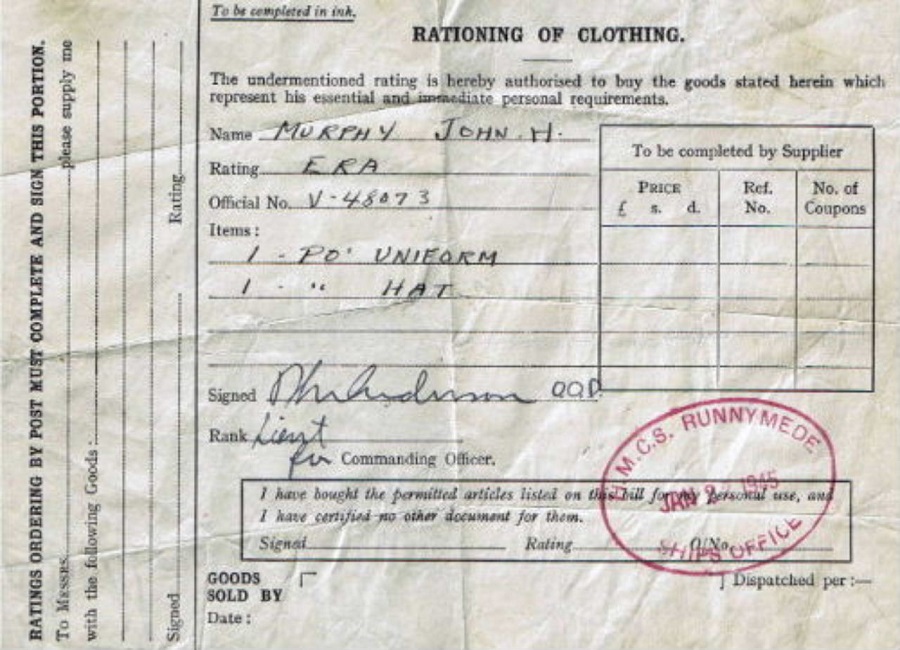 To be completed in ink.
RATIONING OF CLOTHING.
The undermentioned rating is hereby authorised to buy the goods stated herein which
represent his essential and immediate personal requirements.
Name MURPHY JOHN.H.
Rating ERA
Official No. V-48073
Items:
1 - PO' UNIFORM
1 - " HAT
To be completed by Supplier
PRICE
£ s. d.
Ref.
No.
No. of
Coupons
Signed
Rank Lieut
for Commanding Officer.
H.M.C.S. RUNNYMEDE
JAN 2 1945
SHIPS OFFICE
I have bought the permitted articles listed on this bill for my personal use, and
I have certified no other document for them.
Signed Rating O/No.
GOODS
SOLD BY
Date:
Dispatched per:—
RATINGS ORDERING BY POST MUST COMPLETE AND SIGN THIS PORTION.
To MESSRS. please supply me
with the following Goods:
Signed Rating